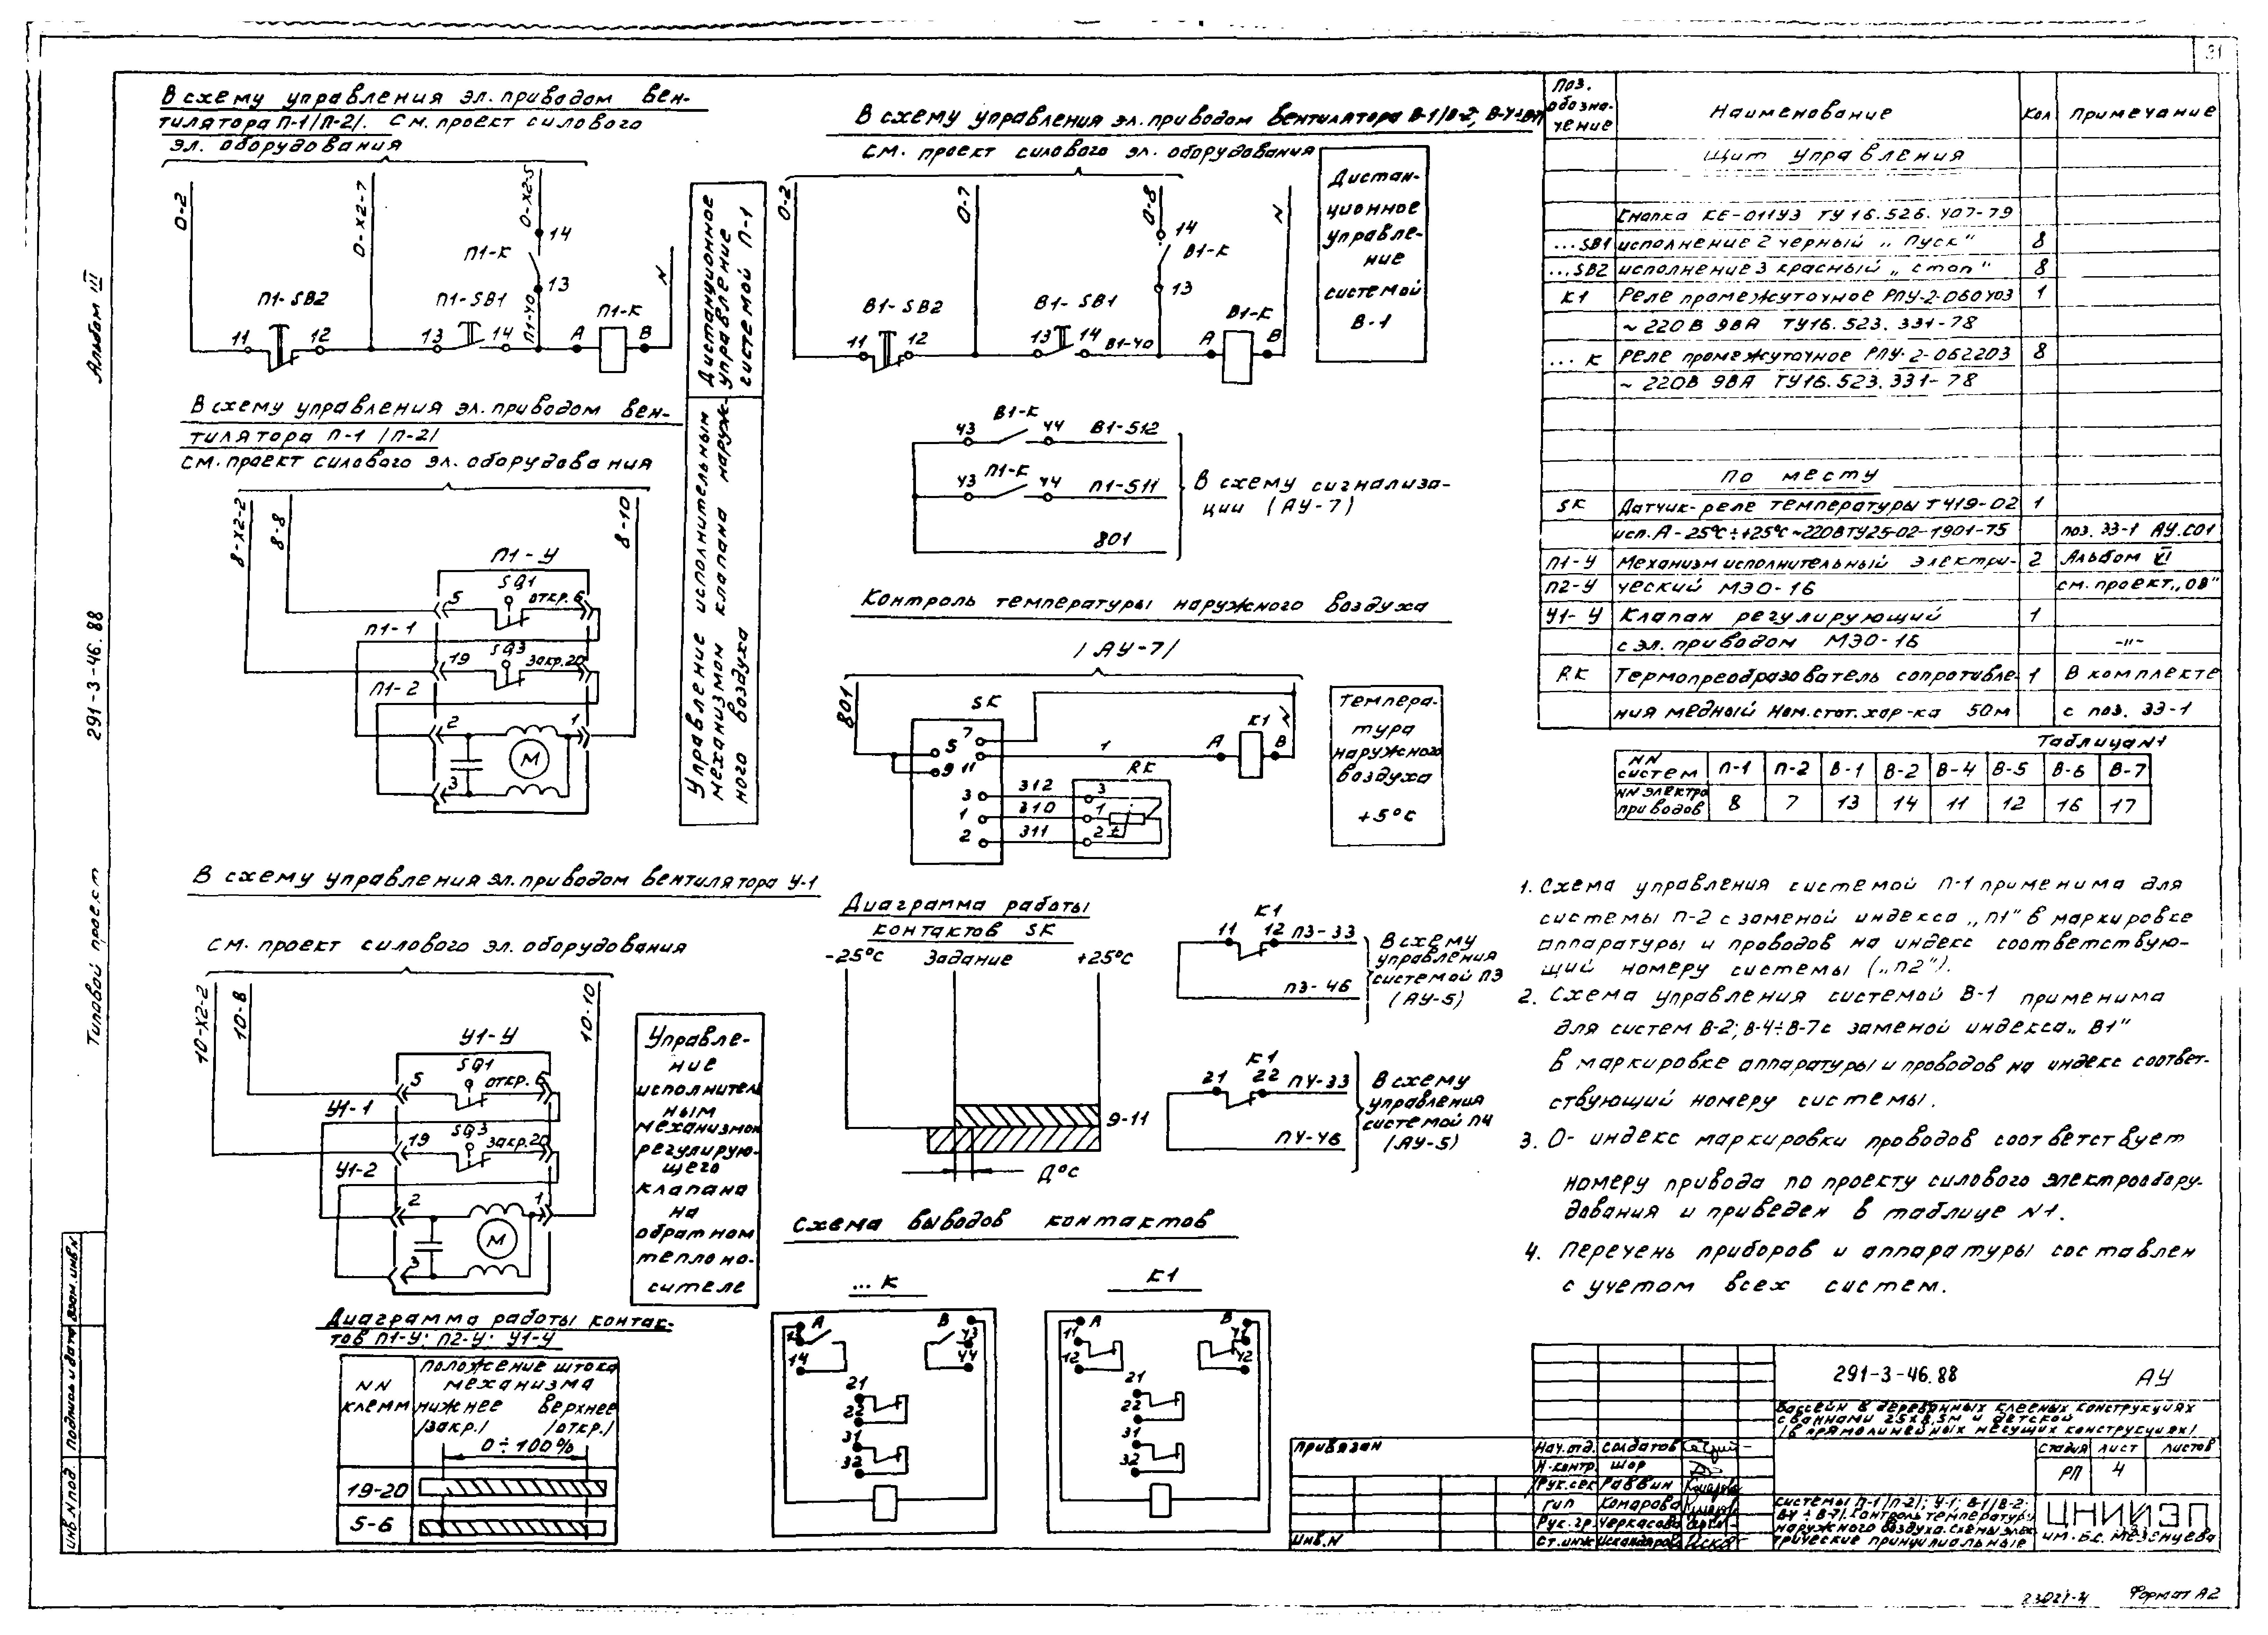 31
Альбом III
291-3-46.88
Типовой проект
Инв.N подл.
Подпись и дата
Взам.инв.N
В схему управления эл.приводом вен-
тилятора П-1/П-2/. См.проект силового
эл. оборудования
0-2
0-Х2-7
0-Х2-5
N
14
П1-К
13
П1-40
П1-SB2
11
12
П1-SB1
13
14
П1-К
А
В
Дистанционное
управление
системой П-1
В схему управления эл.приводом вен-
тилятора П-1 /П-2/
см.проект силового эл.оборудования
8-Х2-2
8-8
8-10
П1-У
SQ1
5
откр.6
П1-1
SQ3
19
закр.20
П1-2
2
1
М
3
Управление исполнительным
механизмом клапана наруж-
ного воздуха
В схему управления эл.приводом вентилятора У-1
см.проект силового эл.оборудования
10-Х2-2
10-8
10-10
У1-У
SQ1
5
откр.6
У1-1
SQ3
19
закр.20
У1-2
2
1
М
3
Управле-
ние
исполнитель
ным
механизмом
регулирую-
щего
клапана
на
обратном
теплоно-
сителе
Диаграмма работы контак-
тов П1-У; П2-У; У1-У
NN
клемм
положение штока
механизма
нижнее верхнее
/закр./ /откр./
0÷100%
19-20
5-6
В схему управления эл.приводом вентилятора В-1/В-2, В-4÷В-7/
см. проект силового эл. оборудования
0-2
0-7
0-8
N
14
В1-К
13
В1-SB2
11
12
В1-SB1
13
14
В1-40
В1-К
А
В
Дистан-
ционное
управле-
ние
системой
В-1
В1-К
43
44
В1-512
П1-К
43
44
П1-511
801
В схему сигнализа-
ции (АУ-7)
Контроль температуры наружного воздуха
/АУ-7/
801
SK
7
5
9
11
1
А
К1
В
N
RK
3
312
3
1
310
1
2
311
2
t
Темпера-
тура
наружного
воздуха
+5°С
Диаграмма работы
контактов SK
-25°С
Задание
+25°С
9-11
Д°С
К1
11
12
П3-33
П3-46
В схему
управления
системой П3
(АУ-5)
К1
21
22
П4-33
П4-46
В схему
управления
системой П4
(АУ-5)
Схема выводов контактов
... К
А
В
13
14
43
44
21
22
31
32
К1
А
В
11
12
41
42
21
22
31
32
Поз. обозна-чение
Наименование
Кол
Примечание
Щит управления
Кнопка КЕ-011У3 ТУ16.526.407-79
...SB1 исполнение 2 черный „Пуск“ 8
...SB2 исполнение 3 красный „стоп“ 8
К1 Реле промежуточное РПУ-2-060У03 1
~220В 9ВА ТУ16.523.331-78
... К Реле промежуточное РПУ-2-062203 8
~220В 9ВА ТУ16.523.331-78
По месту
SK Датчик-реле температуры Т419-02 1
исп.А-25°С÷+25°С~220В ТУ25-02-1901-75 поз. 33-1 АУ.СО1
П1-У Механизм исполнительный электри- 2 Альбом VI
П2-У ческий МЭО-16 см.проект„ОВ“
У1-У Клапан регулирующий 1
с эл.приводом МЭО-16 -"-
RK Термопреобразователь сопротивле- 1 В комплекте
ния медный Ном.стат.хар-ка 50М с поз. 33-1
Таблица N1
NN систем П-1 П-2 В-1 В-2 В-4 В-5 В-6 В-7
NN электро приводов 8 7 13 14 11 12 16 17
1. Схема управления системой П-1 применима для
системы П-2 с заменой индекса „П1“ в маркировке
аппаратуры и проводов на индекс соответствую-
щий номеру системы („П2“).
2. Схема управления системой В-1 применима
для систем В-2; В-4÷В-7 с заменой индекса „В1“
в маркировке аппаратуры и проводов на индекс соответ-
ствующий номеру системы.
3. 0- индекс маркировки проводов соответствует
номеру привода по проекту силового электрообору-
дования и приведен в таблице N1.
4. Перечень приборов и аппаратуры составлен
с учетом всех систем.
291-3-46.88 АУ
Бассейн в деревянных клееных конструкциях
с ваннами 25х8,5м и детской
/в прямолинейных несущих конструкциях/
Стадия Лист Листов
РП 4
Системы П-1/П-2/; У-1; В-1/В-2;
В4÷В-7/. Контроль температуры
наружного воздуха. Схемы элек
трические принципиальные
ЦНИИЭП
им. Б.С. Мезенцева
Привязан
Инв.N
Нач.отд. Солдатов
Н.контр. Шор
Рук.сек Раввин
ГИП Комарова
Рук.гр. Черкасова
Ст.инж Искандаров
23021-4 Формат А2